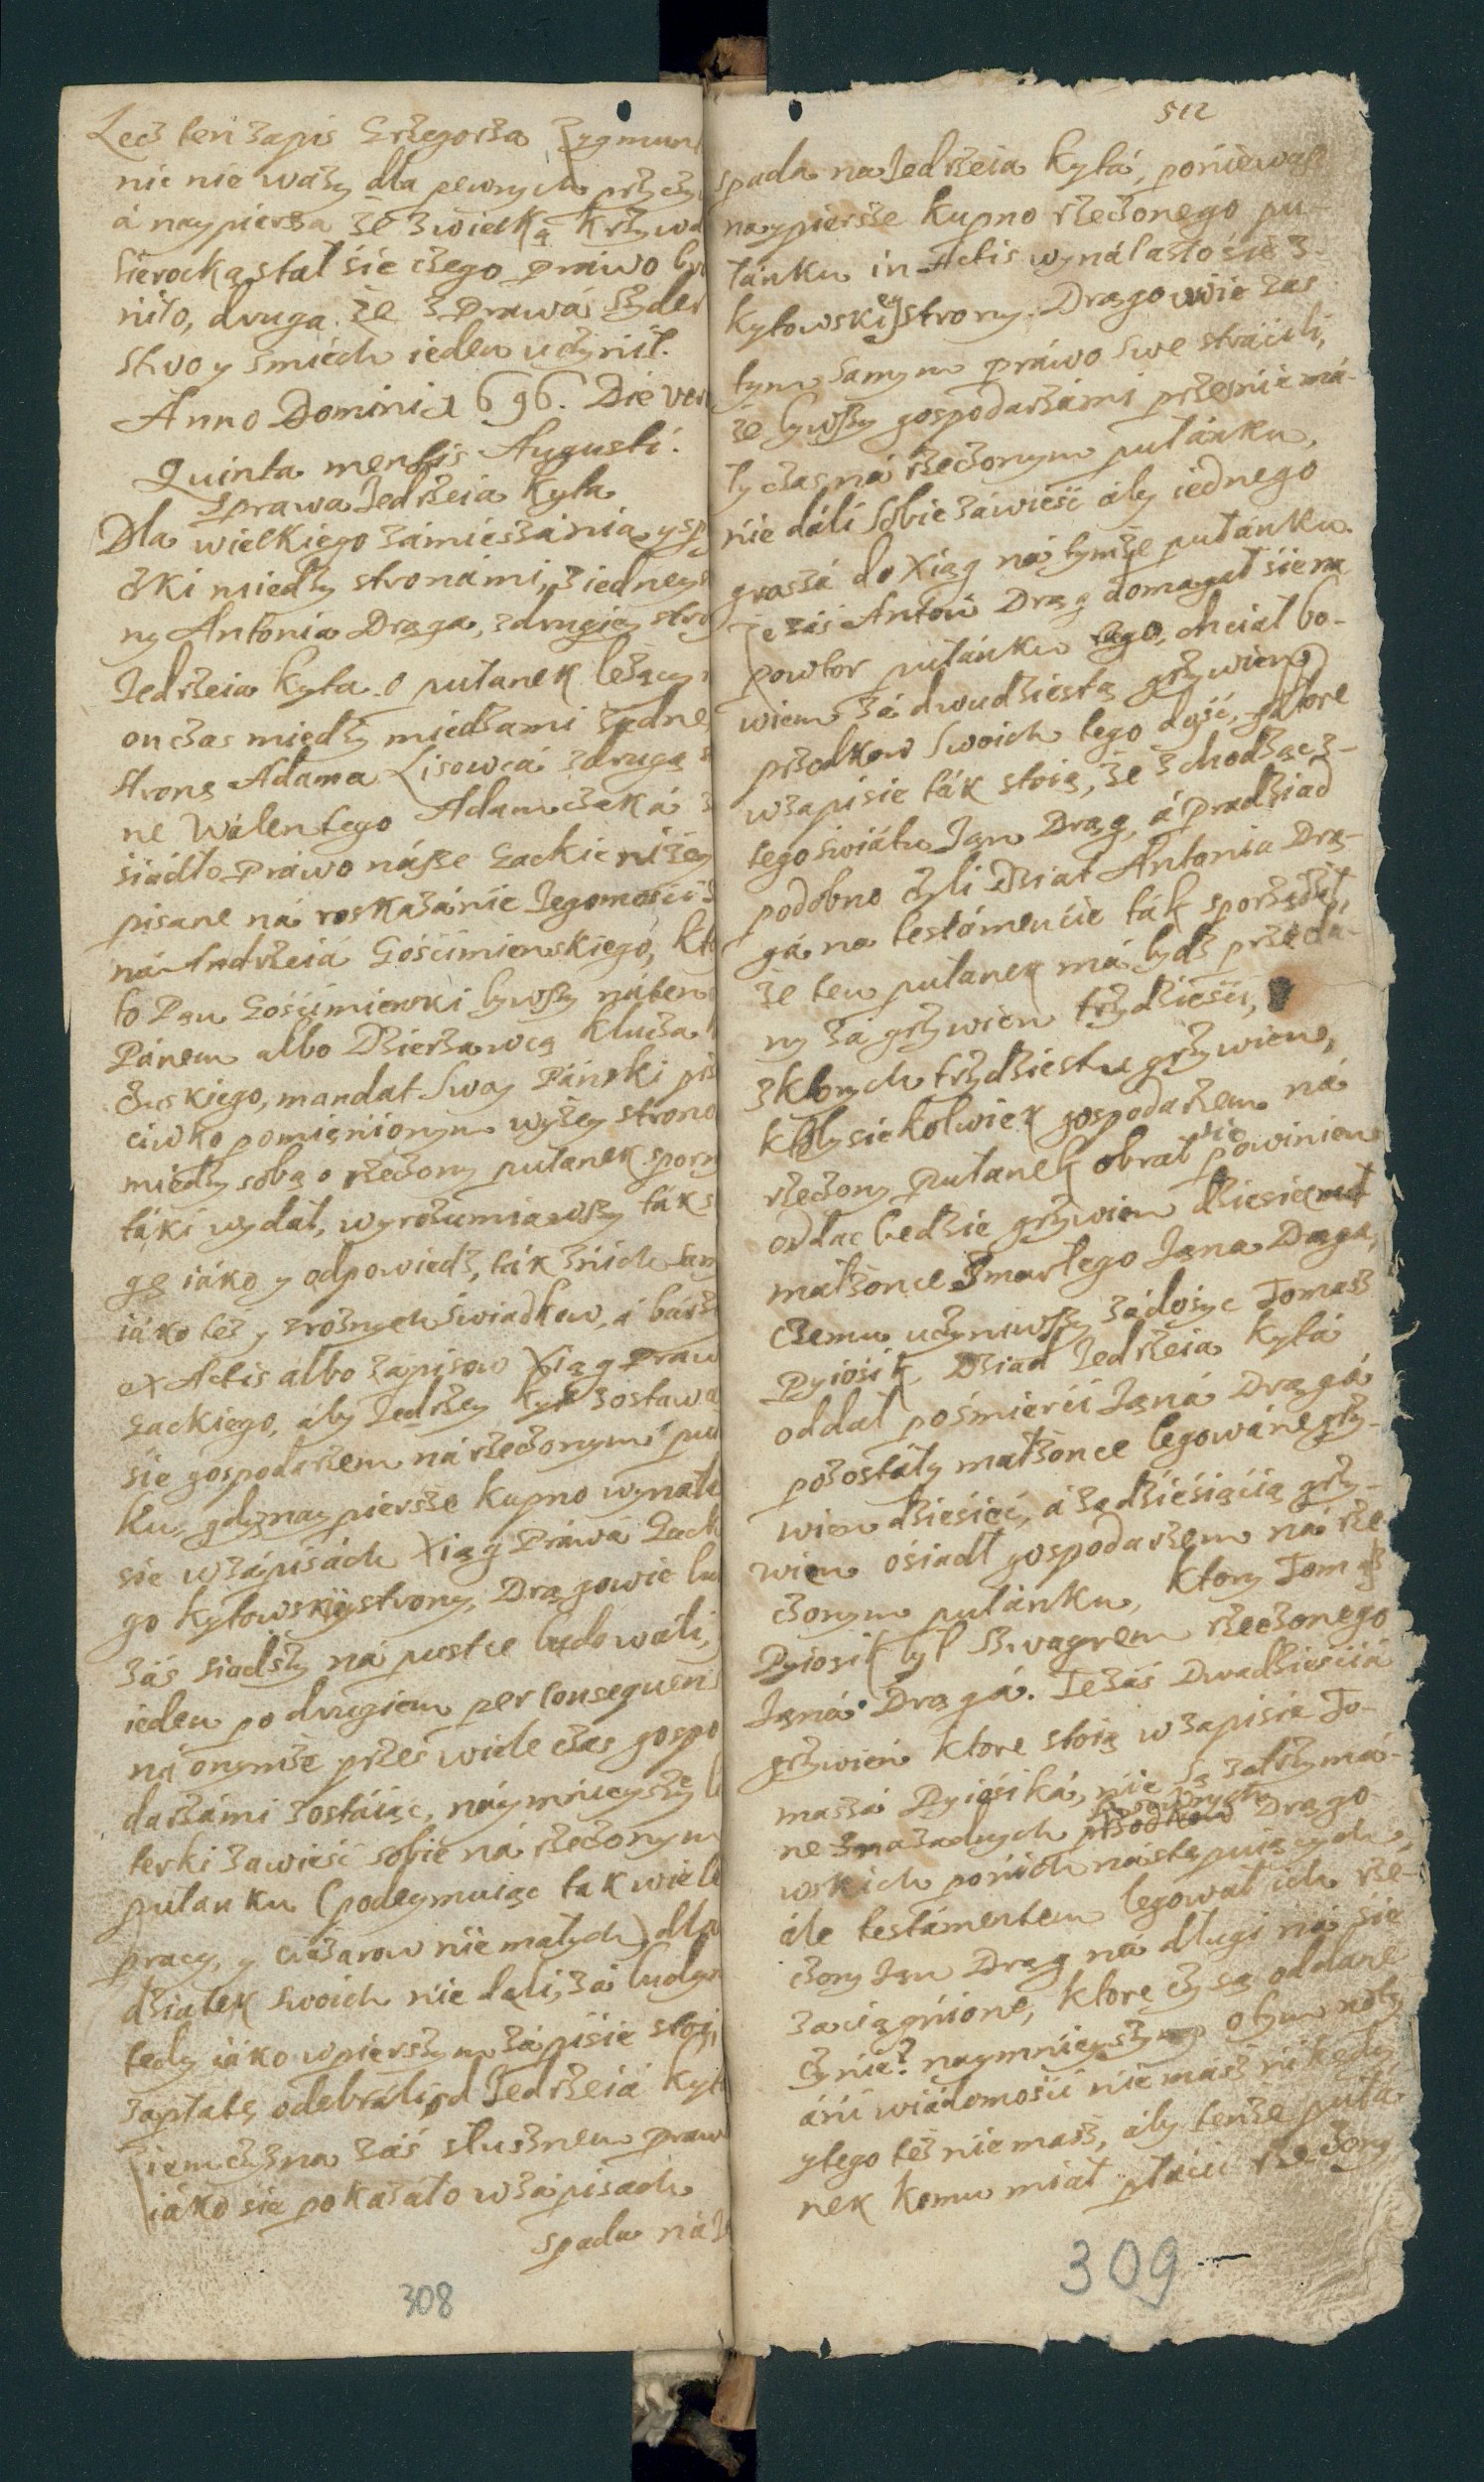 Lecz ten zapis Grzegorza Zygmun
nic nie waży dla pewnych przyczy
á naypiersza że z wielką krzywd
sierocką stał sie czego prawo bro
niło, druga że z Prawá szyder
stwo y smiech ieden uczynił.
Anno Domini 1696. Die ver
Quinta mensis Augusti.
Sprawa Jedrzeia Kyta
Dla wielkiego zámieszánia y sp
czki miedzy stronámi, z iedney s
ny Antonia Drąga, z drugiey stro
Jedrzeia Kyta o pułanek leżący
on czas miedzy miedzami z iedne
strone Adama Lisowcá z drugą s
ne Wálentego Adamczaká
śiádło Práwo násze Zackie niżey
pisane ná roskazánie Jegomości
ná Andrzeiá Gośćimienskiego, kto
to Pan Gośćimienski bywszy náten
Pánem albo Dzierżawcą klucza
czuskiego, mandat swoy Pánski prze
ciwko pomięnionym wyżey strono
miedzy sobą o rzeczony pułanek sporn
táki wydał, wyrozumiawszy ták s
gę iáko y odpowiedź, ták z nich sam
iáko też y z rożnych świadkow, á barzi
ex Actis albo zapisow Xiąg Praw
Zackiego, áby Jedrzey Kyt zostawa
sie gospodarzem ná rzeczonym puł
ku, gdyż naypiersze kupno wynalá
sie w zápisách Xiąg Práwá Zack
go Kytowskiey strony, Drągowie lu
záś siadszy ná pustce budowáli,
ieden po drugiem per consequen
ná onymże przes wiele czas gospo
darzámi zostáiąc, náymnieyszy l
terki zawieść sobie ná rzeczonym
pułanku (podeymuiąc tak wiele
pracy, y ciężarow nie małych) dla
dziatek swoich nie dali, zá budyn
tedy iáko w pierszym zápisie stoi,
zapłatę odebráli od Jedrzeiá Kyt
ziemczyzna záś słusznem praw
iáko sie pokazáło w zápisách
spada ná Je
308
512
spada na Jedrzeia Kytá, poniewasz
naypiersze kupno rzeczonego pu-
łánku in Actis wynálazło sie z
Kytowskiey strony. Drągowie zas
tym samym práwo swe stráćili,
że bywszy gospodarzámi przesnie má-
ły czas ná rzeczonym pułánku,
nie dáli sobie záwieść áby iednego
groszá do Xiąg ná tymże pułanku.
Że záś Antoni Drąg domagał sie na
powtor pułánku tego, chciał bo-
wiem zá dwudziestą grzywien
przodkow swoich tego dość, ktore
w zapisie ták stoią, że z chodząc z
tego świátu Jan Drąg, á Pradziad
podobno czyli Dziat Antonia Drą-
gá na testámencie ták sporządził,
że ten pułanek má bydź przeda-
ny zá grzywien trzydzieśći,
z ktorych trzydziestu grzywien,
ktoby sie kolwiek gospodarzem ná
rzeczony pułanek obrał sie powinien
oddac bedzie grzywien dziesięć
małżonce zmarłego Jana Drąga,
czemu uczyniwszy zádosyc Tomasz
Pyiosik Dziad Jedrzeia Kytá
oddał po śmierći Janá Drągá
pozostáły małżonce legowáne grzy-
wien dziesięć, á za dziesiąćią grzy-
wien ośiadł gospodarzem ná rze-
czonym pułánku, ktory Tomasz
Pyiosik był szwagrem rzeczonego
Janá Drągá. Te záś Dwadzieśćiá
grzywien ktore stoią w zapisie To-
masza Pyiośiká, nie są zatrzymá-
ne zna żadnych przodkow Drągo-
wskich po nich nástępuiących,
ále testámentem legował ich rze-
czony Jan Drąg ná długi ná sie
zaciągnione, ktore czy są oddane
czy nie? naymnieyszy o tym noty
áni wiádomości nie masz nikędy
y tego też nie masz, áby tenże puła-
nek komu miał płácić rzeczony
309